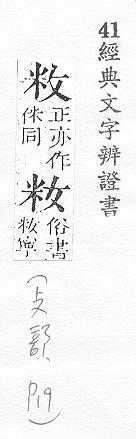 41 經典文字辨證書
敉 正亦作侎同 籹 俗書敉寧
(攴部, P19)